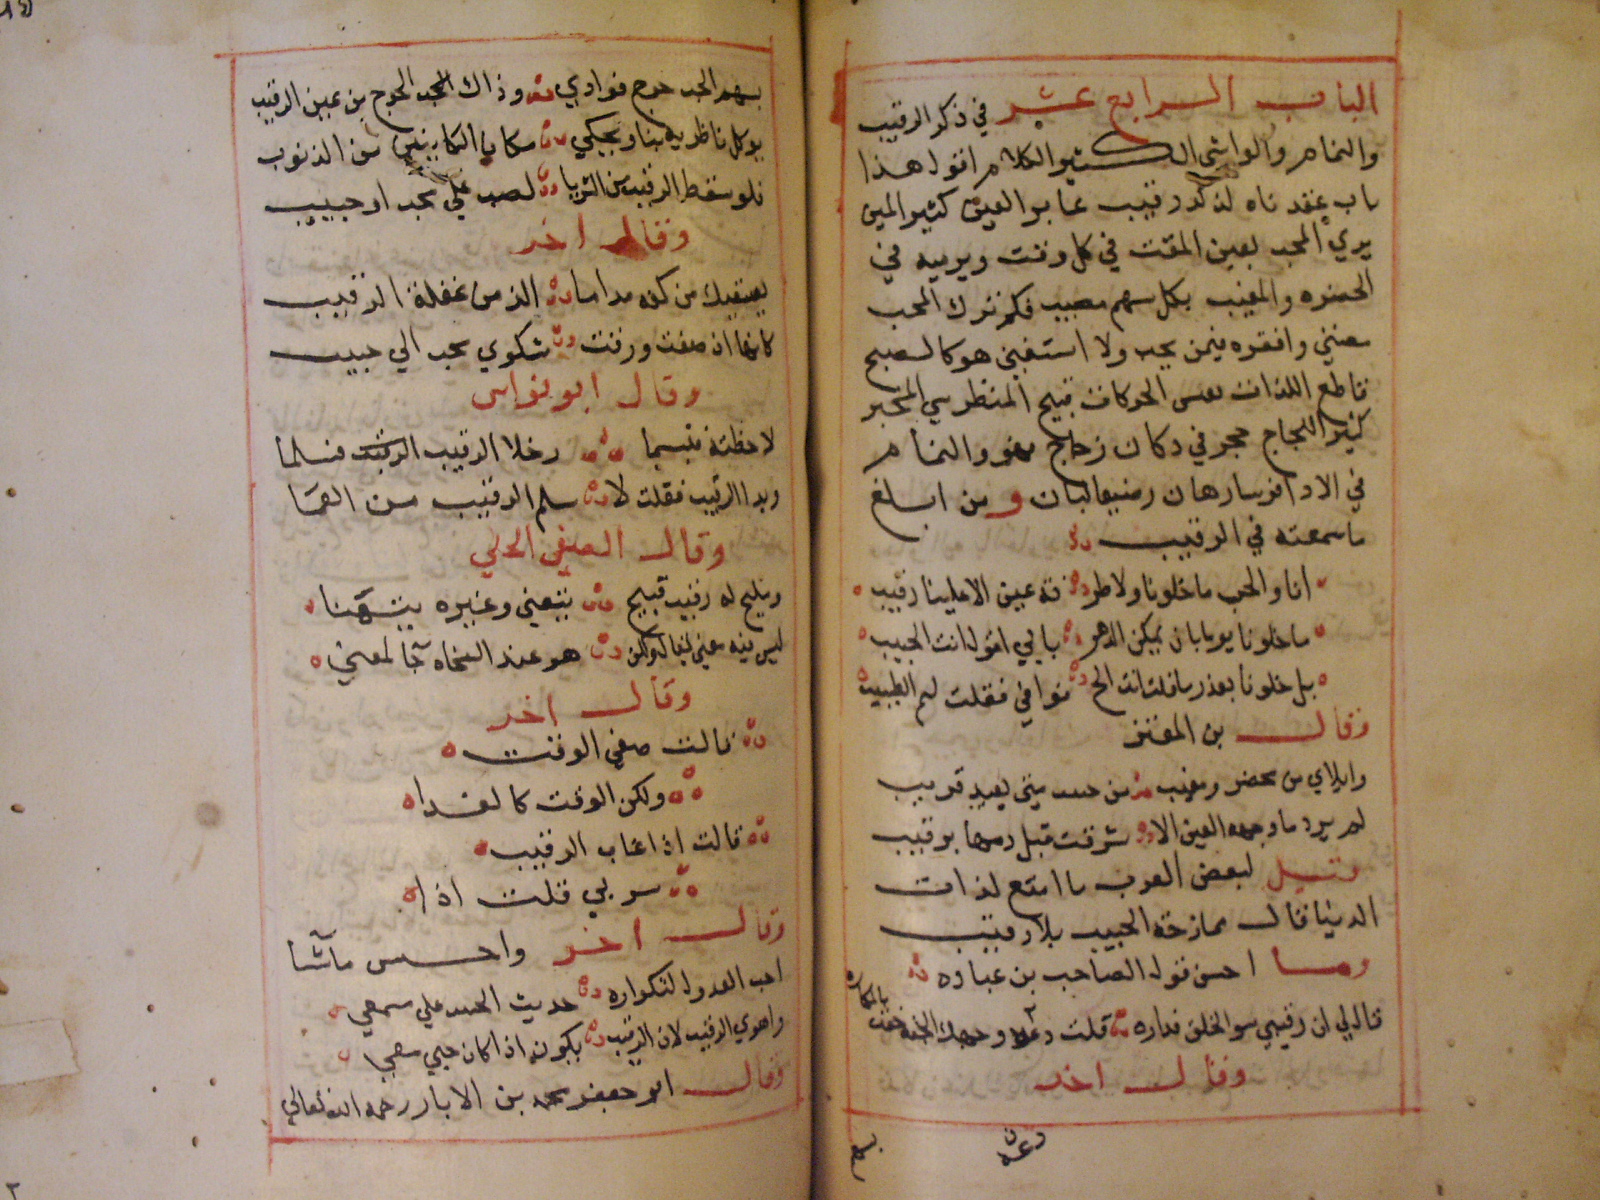 الباب الرابع عشر في ذكر الرقيب
والنمام والواشي الكثير الكلام اقول هذا
باب عقدناه لذكر رقيب عابر العين كثير المين
يري المحب بعين المقت في كل وقت ويرميه في
الحضره والمغيب بكل سهم مصيب فكم ترك المحب
قاطع اللذات الحركات قبيح المنظر سي المخبر
كثير اللجاج حجر في دكان زجاج فهو والنمام
في الاذا فرسا رهان رضيعا لبان ومن ابلغ
ما سمعته في الرقيب
انا والحب ما خلونا ولا طرفة عين الا علينا رقيب
ما خلونا يوما بان يمكن الدهر بابي اقول انت الحبيب
بل خلونا بعذر ما قلت انت الح فوافي فقلت لم الطبيب
وقال بن المعتز
وابلاي من محضر ومغيب من حبيب مني بعيد قريب
لم يرد ما وجهه العين الا شرقت قبل ريها برقيب
وقيل لبعض العرب ما امتع لذات
الدنيا قال ممازحة الحبيب بلا رقيب
وما احسن قول الصاحب بن عباده
قال لي ان رقيبي سو الخلق فداره قلت دعني وجهك الجنة حفت
بالمكاره
وقال اخر
بسهم الحب جرح فوادي وذاك الحب الجرح من عين الرقيب
يوكل ناظريه بنا ويحكي مكان الكاتبين من الذنوب
فلو سقط الرقيب من الثريا لصب علي محب او حبيب
وقال اخر
يسقيك من كفه مداما الذ من غفلة الرقيب
كانها ان صفت ورقت شكوي محب الي حبيب
وقال ابو نواس
لاحظته فتبسما وخلا الرقيب فسلما
وبدا الرقيب فقلت لا سلم الرقيب من العما
وقال الصفي الحلي
ومليح له رقيب قبيح يتعني وغيره يتهنا
ليس فيه معني يقال ولكن هو عند النحاه جا لمعني
وقال اخر
قالت صفي الوقت
ولكن الوقت كالغدا
قالت اذا غاب الرقيب
سر بي قلت اذا
وقال اخر واحسن ماشا
احب العدول لتكراره حديث الحبيب علي سمعي
واهوي الرقيب لان الرقيب يكون اذا كان حبي معي
وقال ابو جعفر محمد بن الابار رحمه الله تعالي